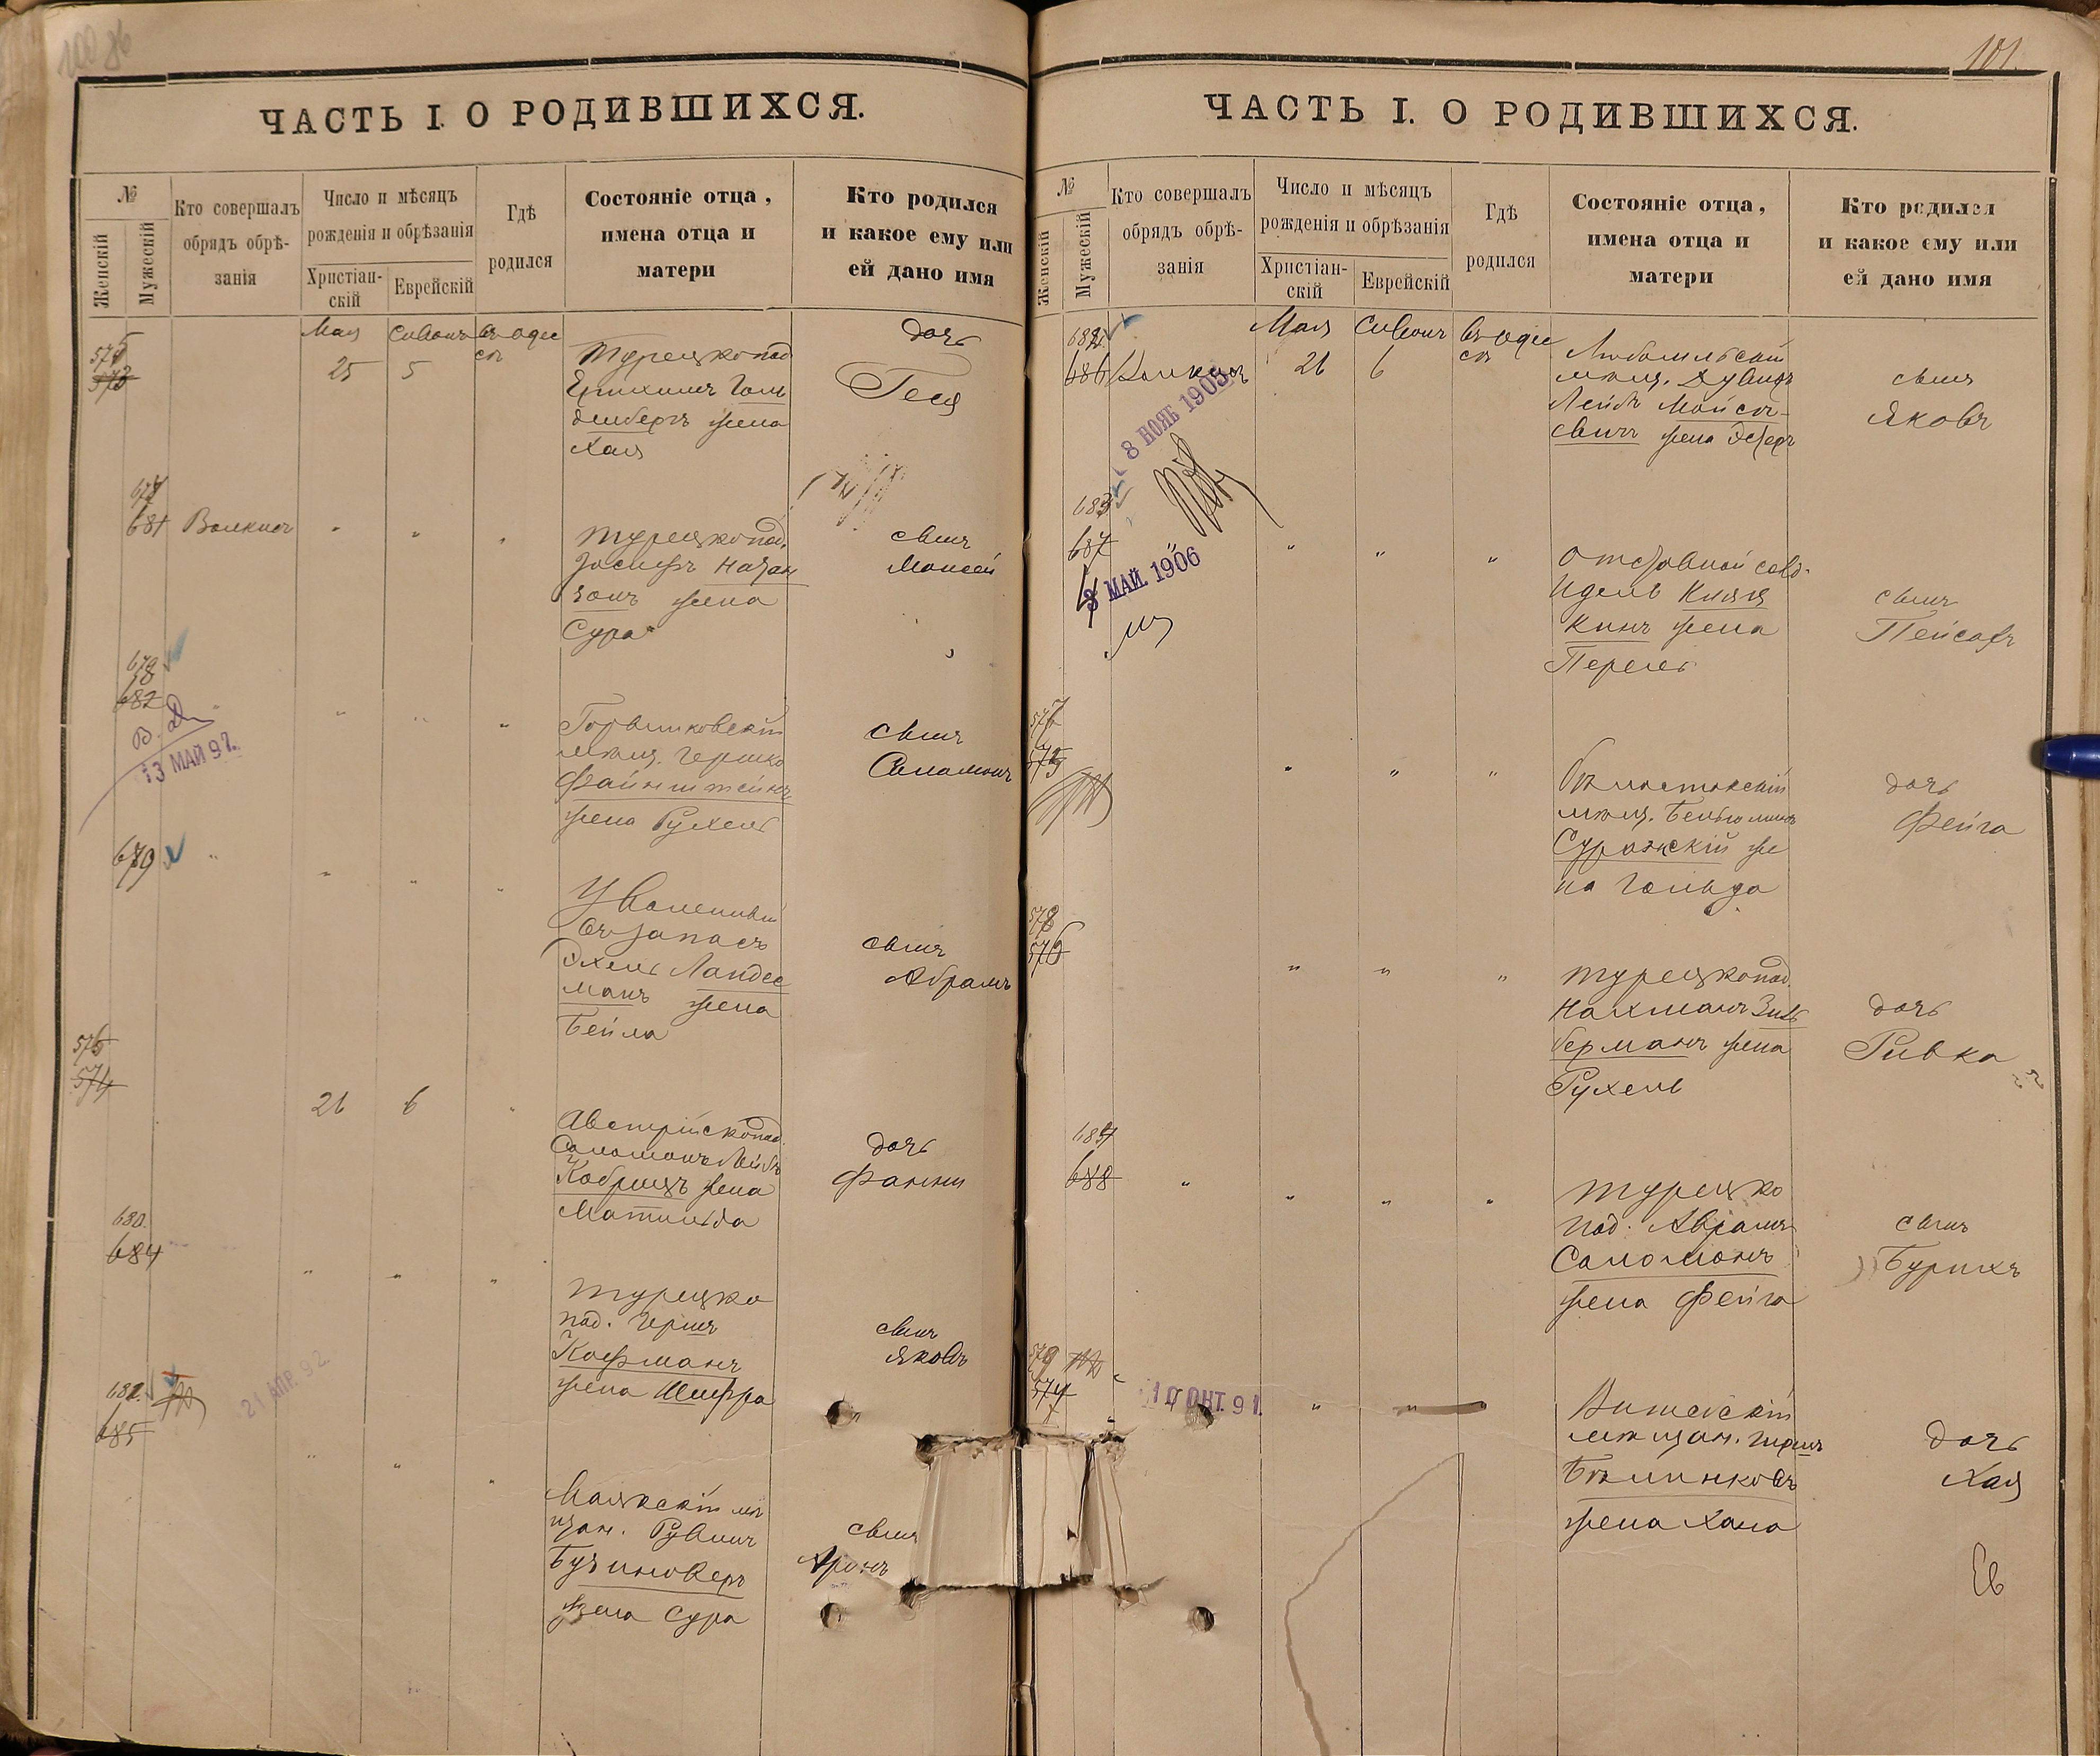 100
ЧАСТЬ I. О РОДИВШИХСЯ.
№
Женскій
Мужескій
Кто совершалъ
обрядъ обрѣ-
занія
Число и мѣсяцъ
рожденія и обрѣзанія
Христіан-
скій
Еврейскій
Гдѣ
родился
Состояніе отца,
имена отца и
матери
Кто родился
и какое ему или
ей дано имя
573
Мая
25
Сивонъ
5
въ Одес
сѣ
Турецкопод
Голь
денбергъ жена
Хая
дочь
Геся
681
Волкинъ
"
"
"
Турецкопод.
Іосифъ Натан
зонъ жена
Сура
сынъ
Моисей
682
"
"
"
"
В. Д.
13 МАЙ 97.
мѣщ. Гершко
Файнштейнъ
жена Рухель
сынъ
Соломонъ
679
"
"
"
"
Уволенный
въ запасъ
Эхель Ландес
манъ жена
Бейла
сынъ
Абрамъ
574
26
6
"
Австрійскопод.
Соломонъ Лейбъ
Кобрицъ жена
Матильда
дочь
Фанни
680.
684
"
"
"
Турецко
под. Гершъ
Кофманъ
жена Шифра
сынъ
Яковъ
685
21 АПР. 92.
"
"
"
Маякскій мѣ
щан. Рувинъ
Бузиноверъ
жена Сура
сынъ
Аронъ
101.
ЧАСТЬ I. О РОДИВШИХСЯ.
№
Женскій
Мужескій
Кто совершалъ
обрядъ обрѣ-
занія
Число и мѣсяцъ
рожденія и обрѣзанія
Христіан-
скій
Еврейскій
Гдѣ
родился
Состояніе отца,
имена отца и
матери
Кто родился
и какое ему или
ей дано имя
682
686
Волкинъ
Мая
26
Сивонъ
6
въ Одес
сѣ
мѣщ.
Лейбъ Мойсе-
евичъ жена Эстеръ
сынъ
Яковъ
8 НОЯБ 1905
683
687
"
"
"
"
МАЙ. 1906
Отставной солд.
Идель Княж
кинъ жена
Перель
сынъ
Пейсахъ
575
"
"
"
Бѣлостокскій
мѣщ. Беньюминъ
Суражскій же
на Гольда
дочь
Фейга
578
576
"
"
"
Турецкопод.
Нахманъ Зиль
берманъ жена
Рухель
дочь
Ривка
684
688
"
"
"
"
Турецко
под. Абрамъ
Соломонъ
жена Фейга
сынъ
Бурихъ
579
577
10 ОКТ. 91.
"
"
Витебскій
мѣщан. Гершъ
Бѣлинковъ
жена Хана
дочь
Хая